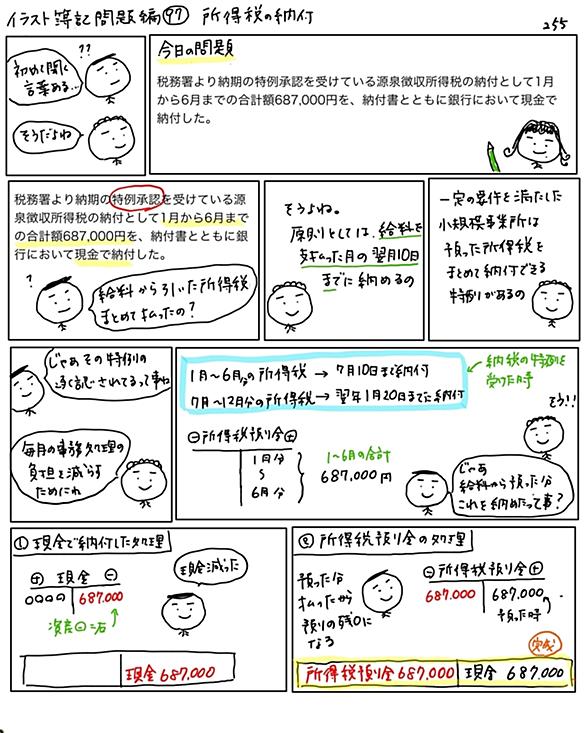 イラスト簿記問題編97 所得税の納付
255
??
初めて聞く
言葉ある…
そうだよね
今日の問題
税務署より納期の特例承認を受けている源泉徴収所得税の納付として1月
から6月までの合計額687,000円を、納付書とともに銀行において現金で
納付した。
税務署より納期の特例承認を受けている源
泉徴収所得税の納付として1月から6月まで
の合計額687,000円を、納付書とともに銀
行において現金で納付した。
?
給料から引いた所得税
まとめて払ったの?
そうよね。
原則としては、給料を
支払った月の翌月10日
までに納めるの
一定の要件を満たした
小規模事業所は
預った所得税を
まとめて納付できる
特例があるの
じゃあその特例の
承認されてるって事ね
毎月の事務処理の
負担を減らす
ためにね
1月〜6月分の所得税 → 7月10日まで納付
7月〜12月分の所得税 → 翌年1月20日までに納付
納税の特例を
受けた時
⊖所得税預り金⊕
1月分
〜
6月分
1〜6月の合計
687,000円
そう!!
じゃあ
給料から預った分
これを納めたって事?
① 現金で納付した処理
⊕ 現金 ⊖
0000
687,000
資産⊖=右
現金減った
現金 687,000
② 所得税預り金の処理
預った分
払ったから
預りの残0に
なる
⊖所得税預り金⊕
687,000
687,000
預った時
完成
所得税預り金 687,000
現金 687,000